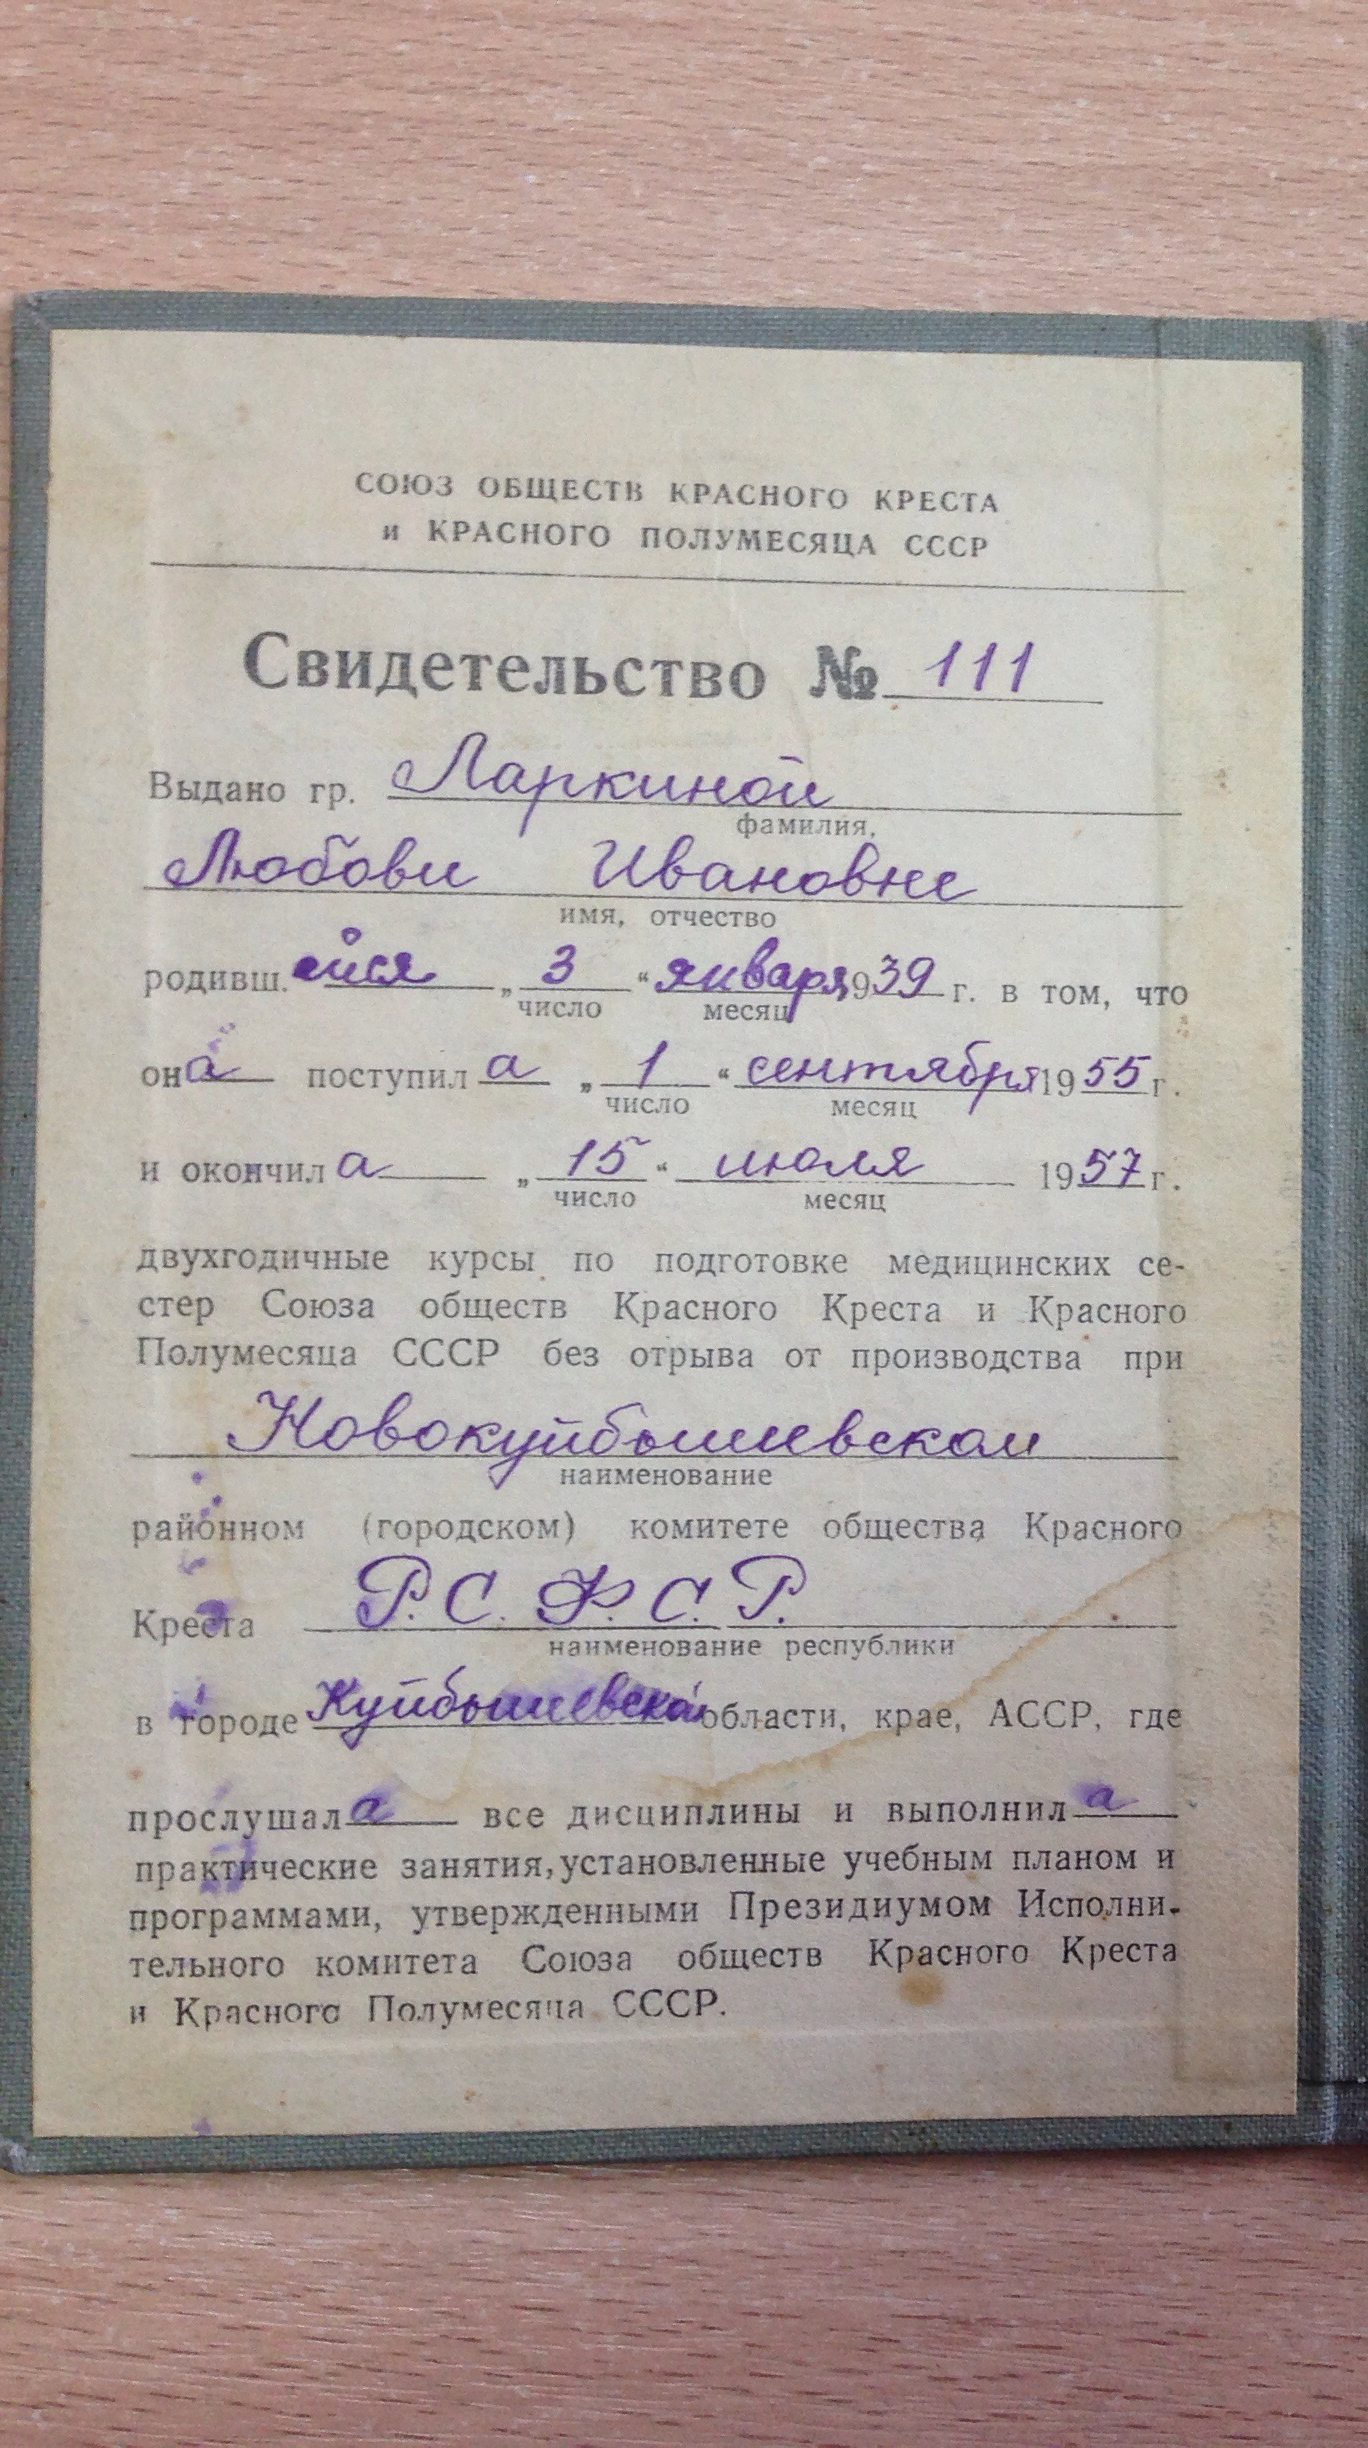 СОЮЗ ОБЩЕСТВ КРАСНОГО КРЕСТА
и КРАСНОГО ПОЛУМЕСЯЦА СССР
Свидетельство № 111
Выдано гр. Ларкиной
фамилия,
Любови Ивановне
имя, отчество
родивш.ейся „ 3 “ января 1939 г. в том, что
число месяц
она поступила „ 1 “ сентября 1955 г.
число месяц
и окончила „ 15 “ июля 1957 г.
число месяц
двухгодичные курсы по подготовке медицинских се-
стер Союза обществ Красного Креста и Красного
Полумесяца СССР без отрыва от производства при
Новокуйбышевском
наименование
районном (городском) комитете общества Красного
Креста Р. С. Ф. С. Р.
наименование республики
в городе Куйбышевской области, крае, АССР, где
прослушала все дисциплины и выполнила
практические занятия, установленные учебным планом и
программами, утвержденными Президиумом Исполни-
тельного комитета Союза обществ Красного Креста
и Красного Полумесяца СССР.